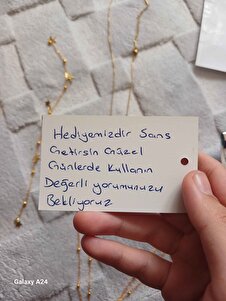 Hediyemizdir Şans
Getirsin Güzel
Günlerde Kullanın
Değerli yorumunuzu
Bekliyoruz
Galaxy A24